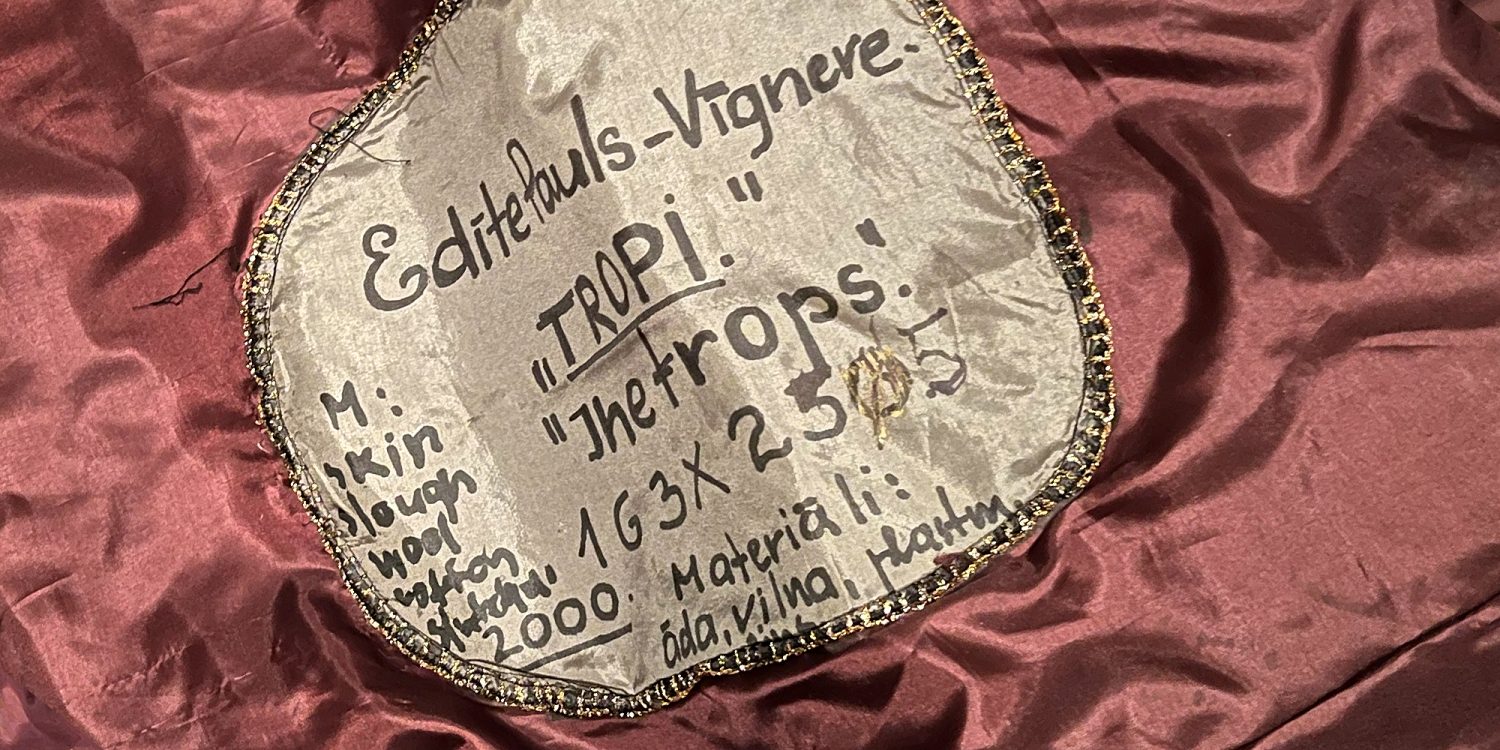 Edīte Pauls-Vīgnere.
„TROPI."
"The trops."
163X25
M:
skin
slough
wool
cotton
2000.
Materiāli:
āda, vilna,